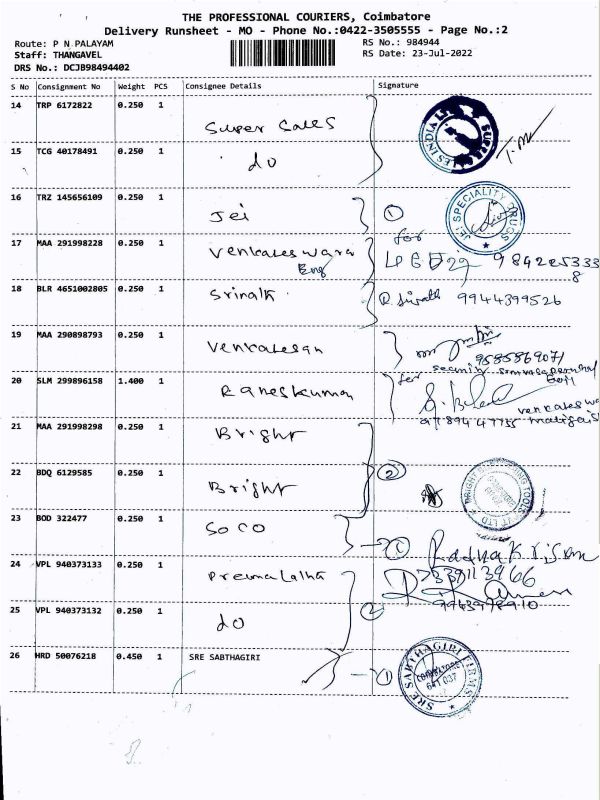 THE PROFESSIONAL COURIERS, Coimbatore
Delivery Runsheet - MO - Phone No.:0422-3505555 - Page No.:2
Route: P N PALAYAM
Staff: THANGAVEL
DRS No.: DCJB98494402
RS No.: 984944
RS Date: 23-Jul-2022
S No Consignment No Weight PCS Consignee Details Signature
14 TRP 6172822 0.250 1
Super Sales
15 TCG 40178491 0.250 1
do
16 TRZ 145656109 0.250 1
Jei ①
JEI SPECIALITY DRUGS
17 MAA 291998228 0.250 1
Venkateswara
Eng
for
18 BLR 4651002805 0.250 1
Srinath
9944399526
19 MAA 290898793 0.250 1
Venkatesan
9585869071
20 SLM 299896158 1.400 1
for
21 MAA 291998298 0.250 1
Bright
22 BDQ 6129585 0.250 1
Bright ②
23 BOD 322477 0.250 1
SOCO ①
Radhakrisnn
24 VPL 940373133 0.250 1
Premalatha
25 VPL 940373132 0.250 1
do ②
26 HRD 50076218 0.450 1 SRE SABTHAGIRI
①
SRE SABTHAGIRI FIRMS
COIMBATORE
641 037